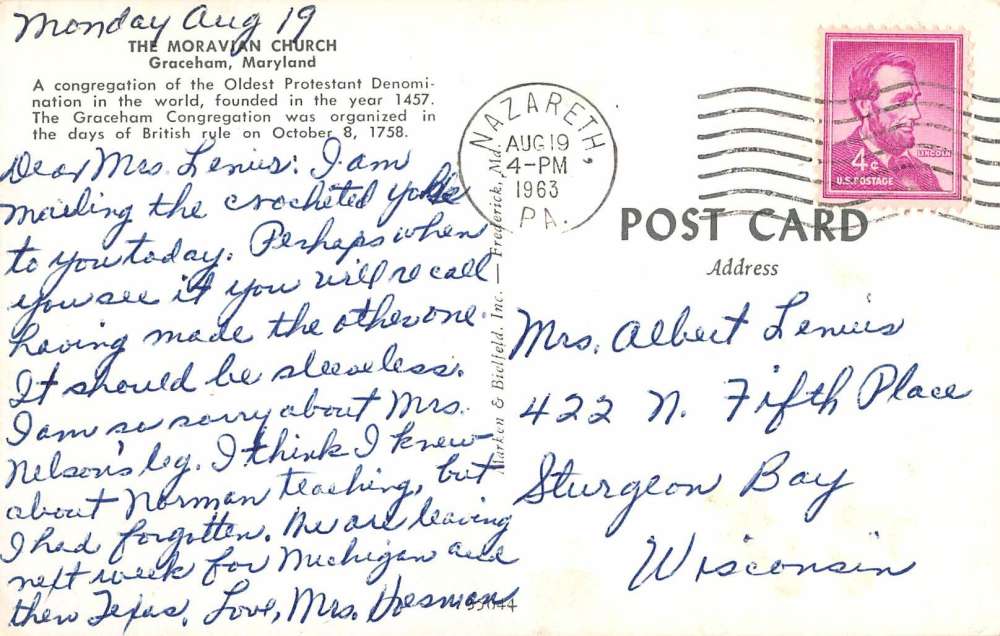 Monday Aug 19
THE MORAVIAN CHURCH
Graceham, Maryland
A congregation of the Oldest Protestant Denomi-
nation in the world, founded in the year 1457.
The Graceham Congregation was organized in
the days of British rule on October 8, 1758.
Dear Mrs. Lenius: I am
mailing the crocheted yoke
to you today. Perhaps when
you see it you will recall
having made the other one.
It should be sleeveless.
I am so sorry about Mrs.
Nelson's leg. I think I knew
about Norman teaching, but
I had forgotten. We are leaving
next week for Michigan and
then Texas. Love, Mrs.
Marken & Bielfeld, Inc. — Frederick, Md.
NAZARETH,
AUG 19
4-PM
1963
PA.
4¢
LINCOLN
U.S. POSTAGE
POST CARD
Address
Mrs. Albert Lenius
422 N. Fifth Place
Sturgeon Bay
Wisconsin